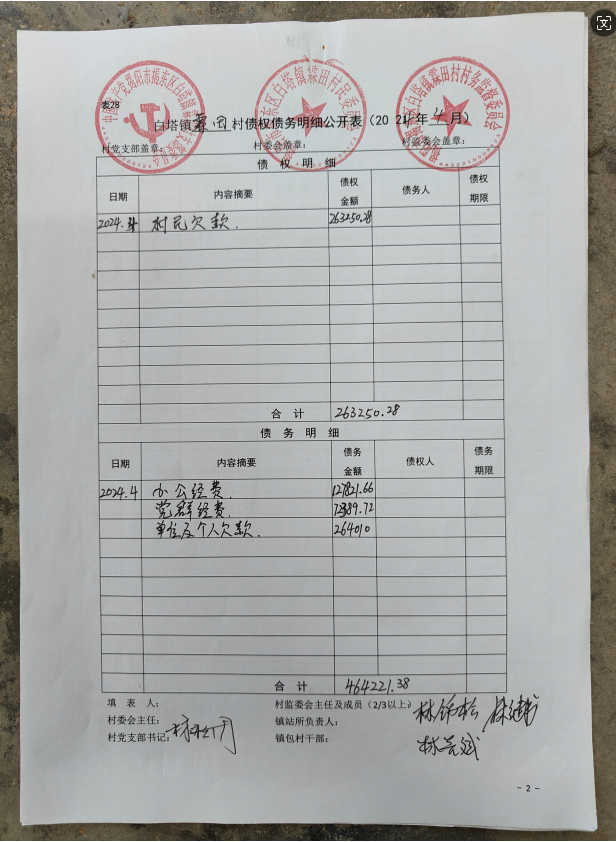 表28
白塔镇霖田村债权债务明细公开表（2024年4月）
村党支部盖章： 村委会盖章： 村监委会盖章：
债权明细
日期 内容摘要 债权金额 债务人 债权期限
2024.4 村民欠款. 263250.28
合计 263250.28
债务明细
日期 内容摘要 债务金额 债权人 债务期限
2024.4 办公经费. 127821.66
党群经费. 72389.72
单位及个人欠款. 264010
合计 464221.38
填表人： 村监委会主任及成员（2/3以上）
村委会主任： 镇站所负责人：
村党支部书记： 镇包村干部：
- 2 -